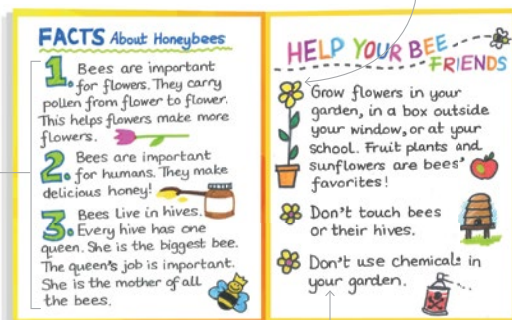 FACTS About Honeybees
1. Bees are important
for flowers. They carry
pollen from flower to flower.
This helps flowers make more
flowers.
2. Bees are important
for humans. They make
delicious honey!
3. Bees Live in hives.
Every hive has one
queen. She is the biggest bee.
The queen's job is important.
She is the mother of all
the bees.
HELP YOUR BEE
FRIENDS
Grow flowers in your
garden, in a box outside
your window, or at your
school. Fruit plants and
sunflowers are bees'
favorites!
Don't touch bees
or their hives.
Don't use chemicals in
your garden.